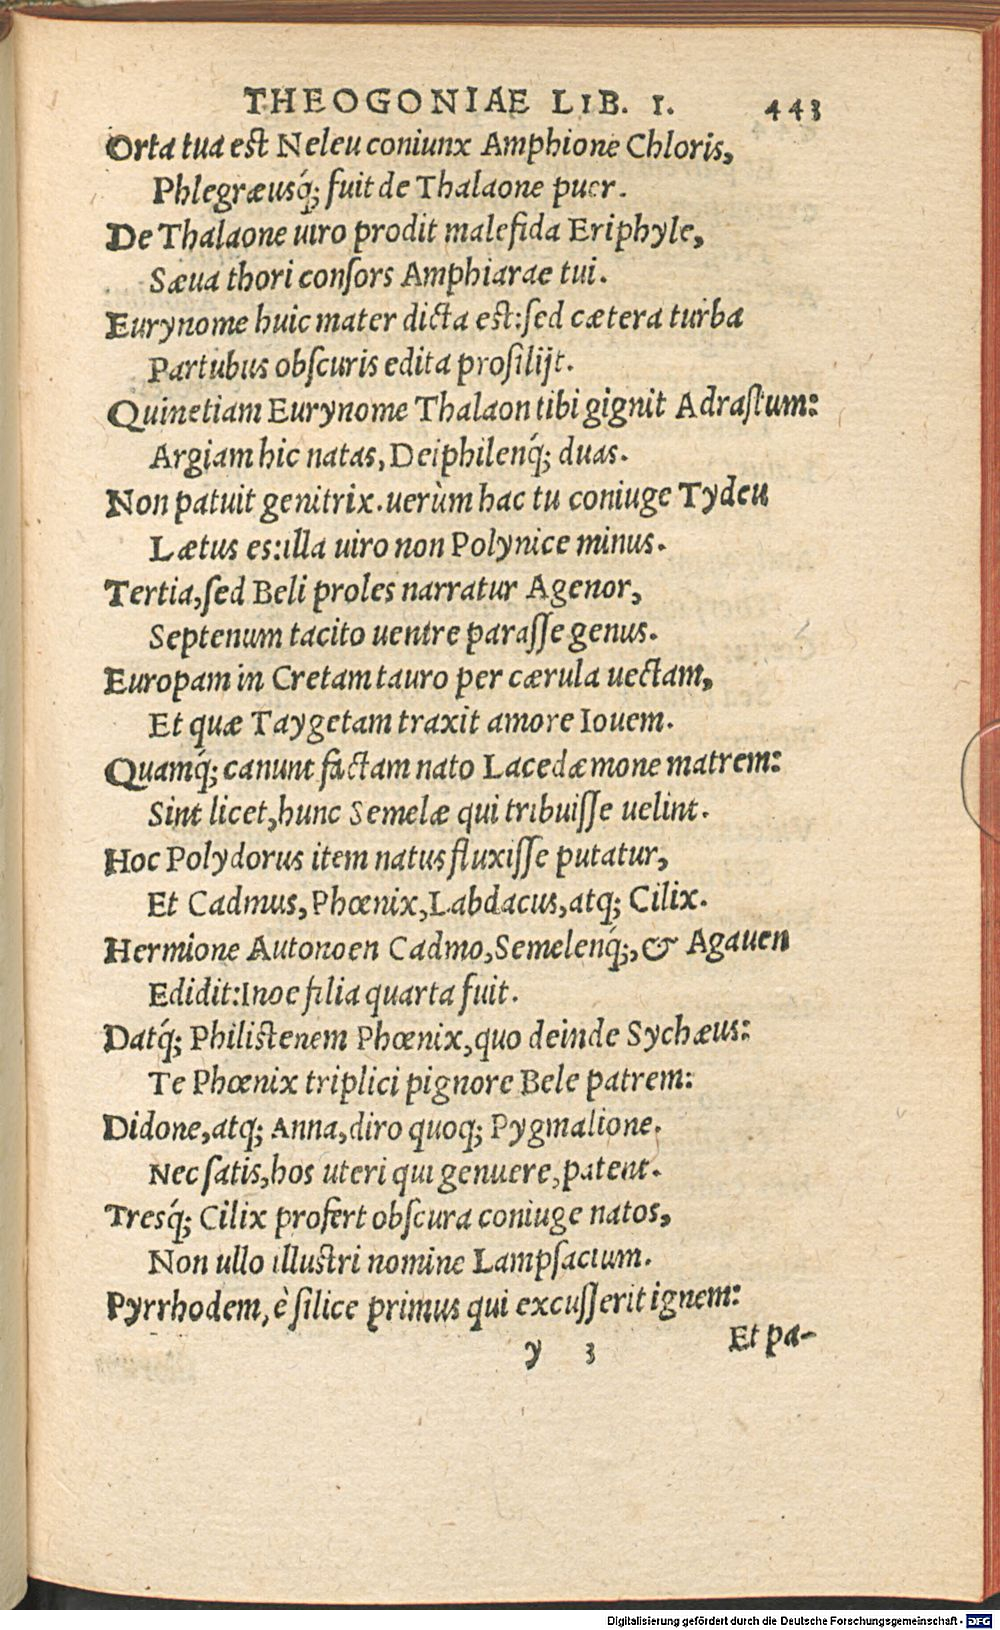 THEOGONIAE LIB. I. 443
Orta tua est Neleu coniunx Amphione Chloris,
Phlegræusq́; fuit de Thalaone puer.
De Thalaone uiro prodit malefida Eriphyle,
Sæua thori conſors Amphiarae tui.
Eurynome huic mater dicta est: ſed cætera turba
Partubus obſcuris edita proſilijt.
Quinetiam Eurynome Thalaon tibi gignit Adraſtum:
Argiam hic natas, Deiphilenq́; duas.
Non patuit genitrix. uerùm hac tu coniuge Tydeu
Lætus es: illa uiro non Polynice minus.
Tertia, ſed Beli proles narratur Agenor,
Septenum tacito uentre paraſſe genus.
Europam in Cretam tauro per cærula uectam,
Et quæ Taygetam traxit amore Iouem.
Quamq́; canunt factam nato Lacedæmone matrem:
Sint licet, hunc Semelæ qui tribuiſſe uelint.
Hoc Polydorus item natus fluxiſſe putatur,
Et Cadmus, Phœnix, Labdacus, atq; Cilix.
Hermione Autonoen Cadmo, Semelenq́;, & Agauen
Edidit: Inoe filia quarta fuit.
Datq́; Philistenem Phœnix, quo deinde Sychæus:
Te Phœnix triplici pignore Bele patrem:
Didone, atq; Anna, diro quoq; Pygmalione.
Nec ſatis, hos uteri qui genuere, patent.
Tresq́; Cilix profert obſcura coniuge natos,
Non ullo illuſtri nomine Lampſacium.
Pyrrhodem, è ſilice primus qui excuſſerit ignem:
y 3 Et pa-
Digitalisierung gefördert durch die Deutsche Forschungsgemeinschaft - DFG